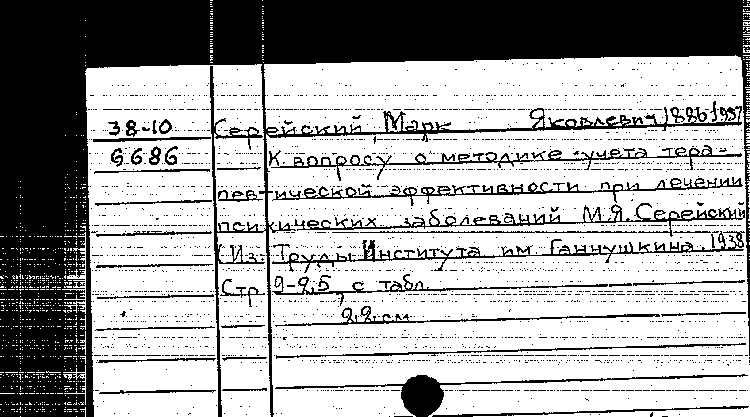 38-10 Серейский, Марк Яковлевич, 1886/1957
6686 К вопросу о методике учета тера-
певтической эффективности при лечении
психических заболеваний М.Я. Серейский
(Из: Труды Института им Ганнушкина. 1938
Стр 9-25, с табл.
22 см